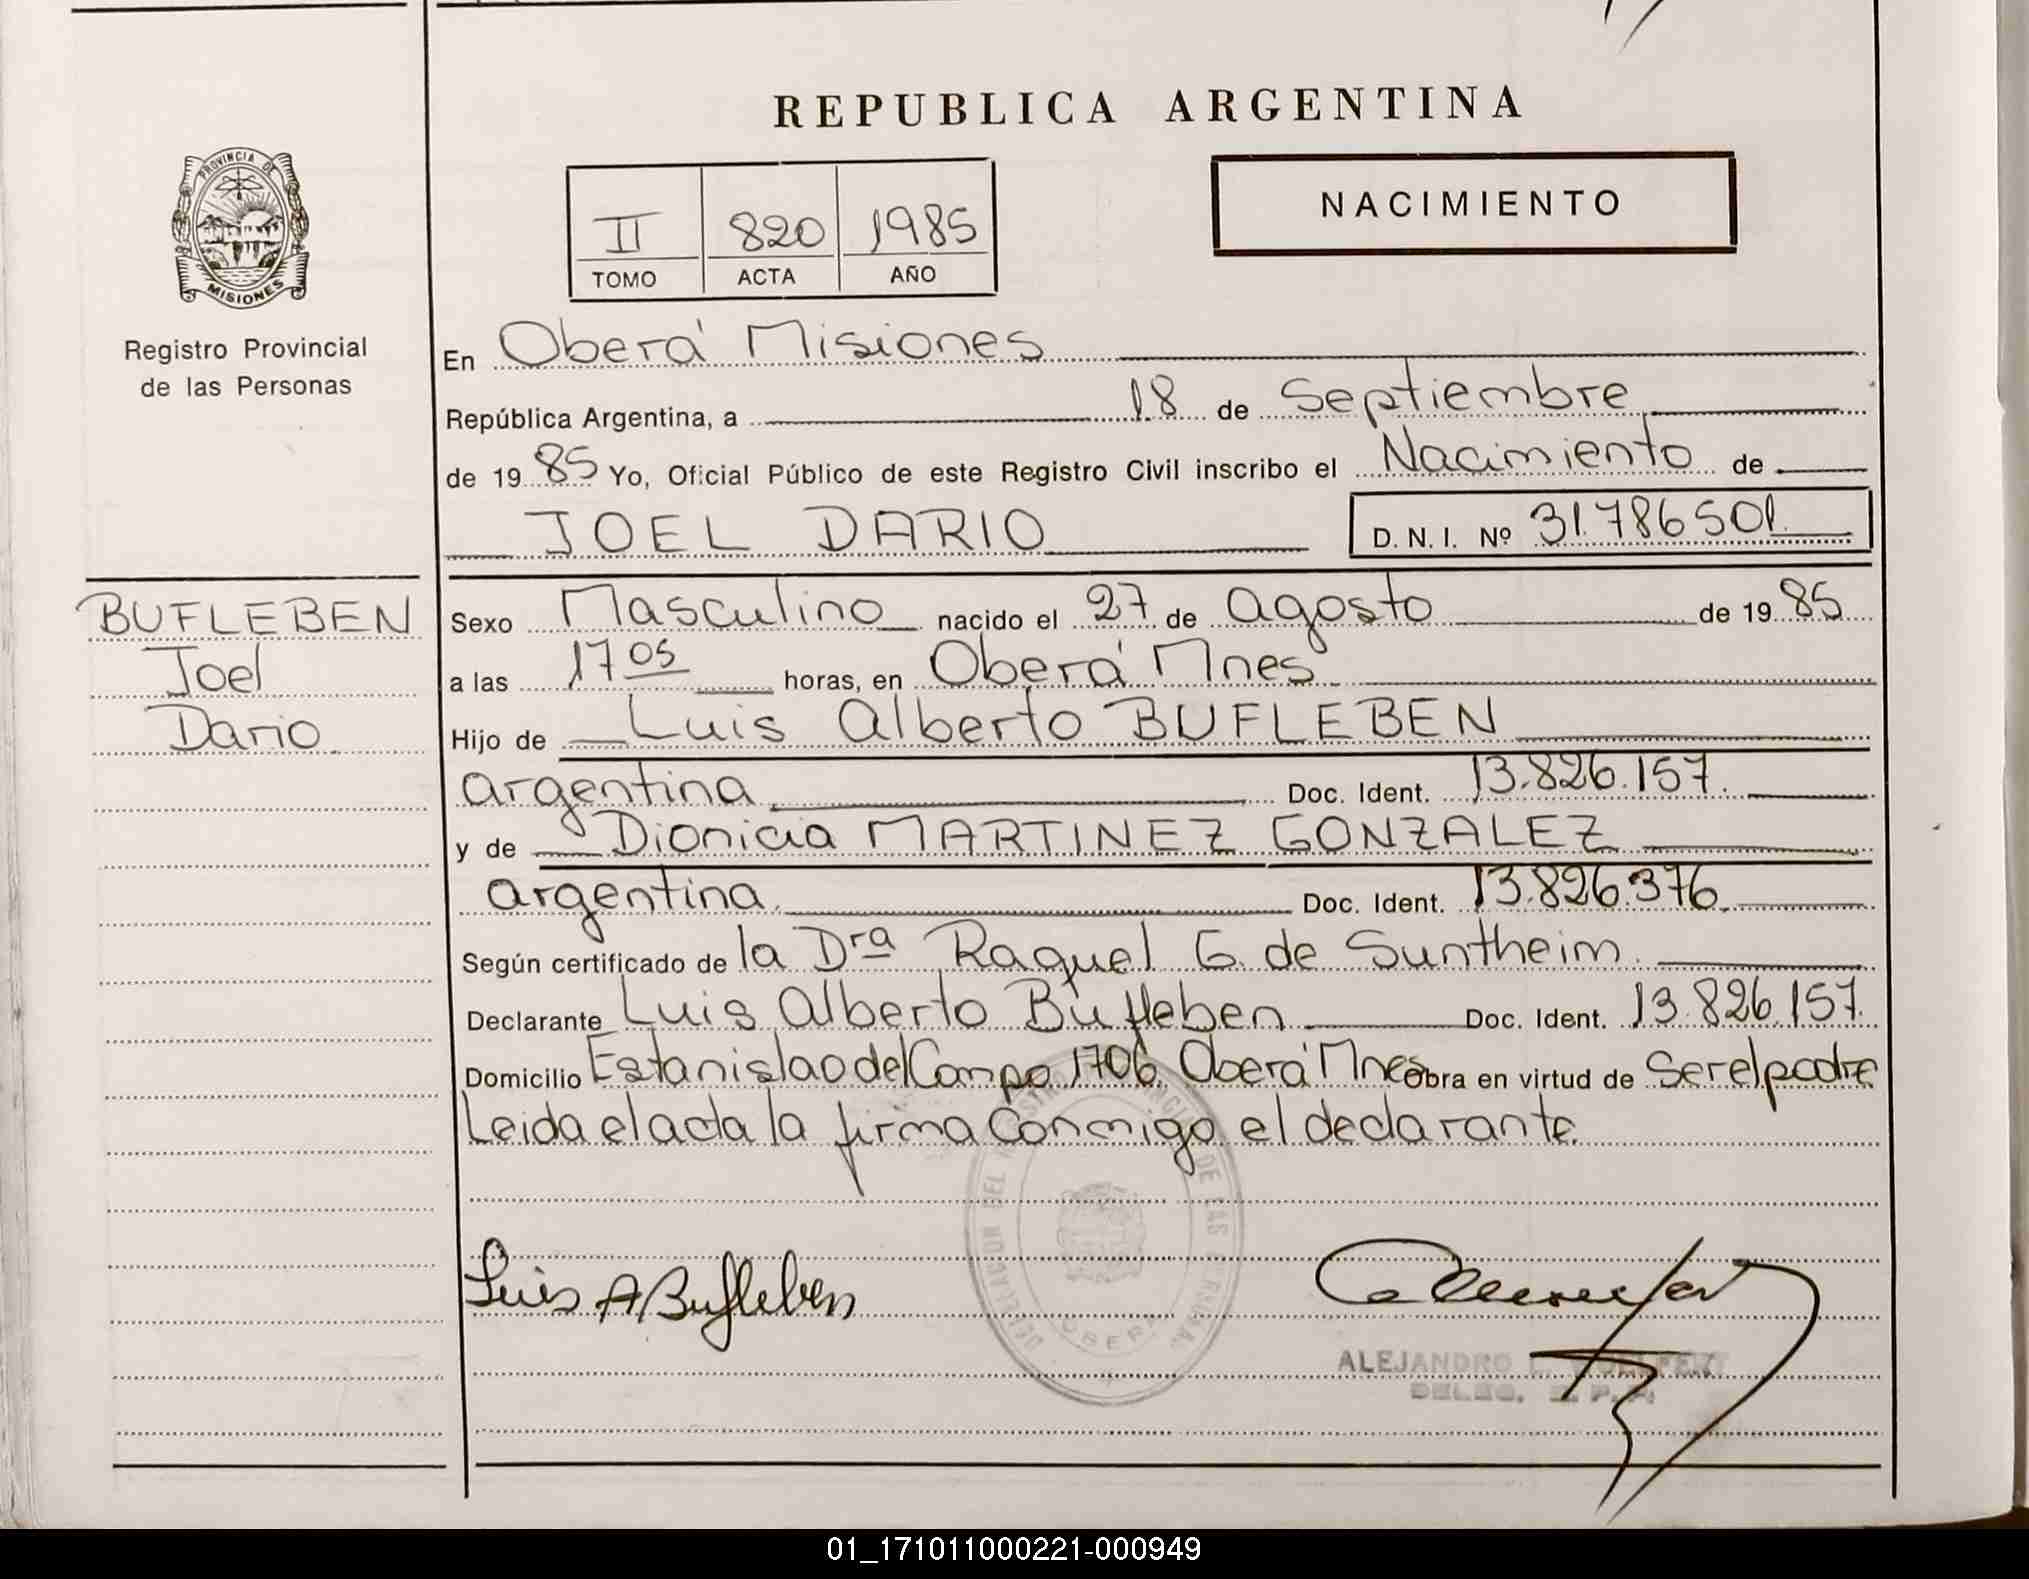 REPUBLICA ARGENTINA
PROVINCIA DE
MISIONES
Registro Provincial
de las Personas
II 820 1985
TOMO ACTA AÑO
NACIMIENTO
En Oberá Misiones
República Argentina, a 18 de Septiembre
de 1985 Yo, Oficial Público de este Registro Civil inscribo el Nacimiento de
JOEL DARIO D.N.I. Nº 31.786501
BUFLEBEN
Joel
Dario
Sexo Masculino nacido el 27 de agosto de 1985
a las 17 05 horas, en Oberá Mnes
Hijo de Luis Alberto BUFLEBEN
argentina Doc. Ident. 13.826.157.
y de Dionicia MARTINEZ GONZALEZ
argentina. Doc. Ident. 13.826.376.
Según certificado de la Dra Raquel G. de Suntheim.
Declarante Luis Alberto Bufleben Doc. Ident. 13.826.157.
Domicilio Estanislao del Campo 1706. Oberá Mnes obra en virtud de Ser el padre
Leida el acta la firma Conmigo el declarante.
Luis A Bufleben
OBERA
ALEJANDRO
DELEG. R. P. P.
01_171011000221-000949